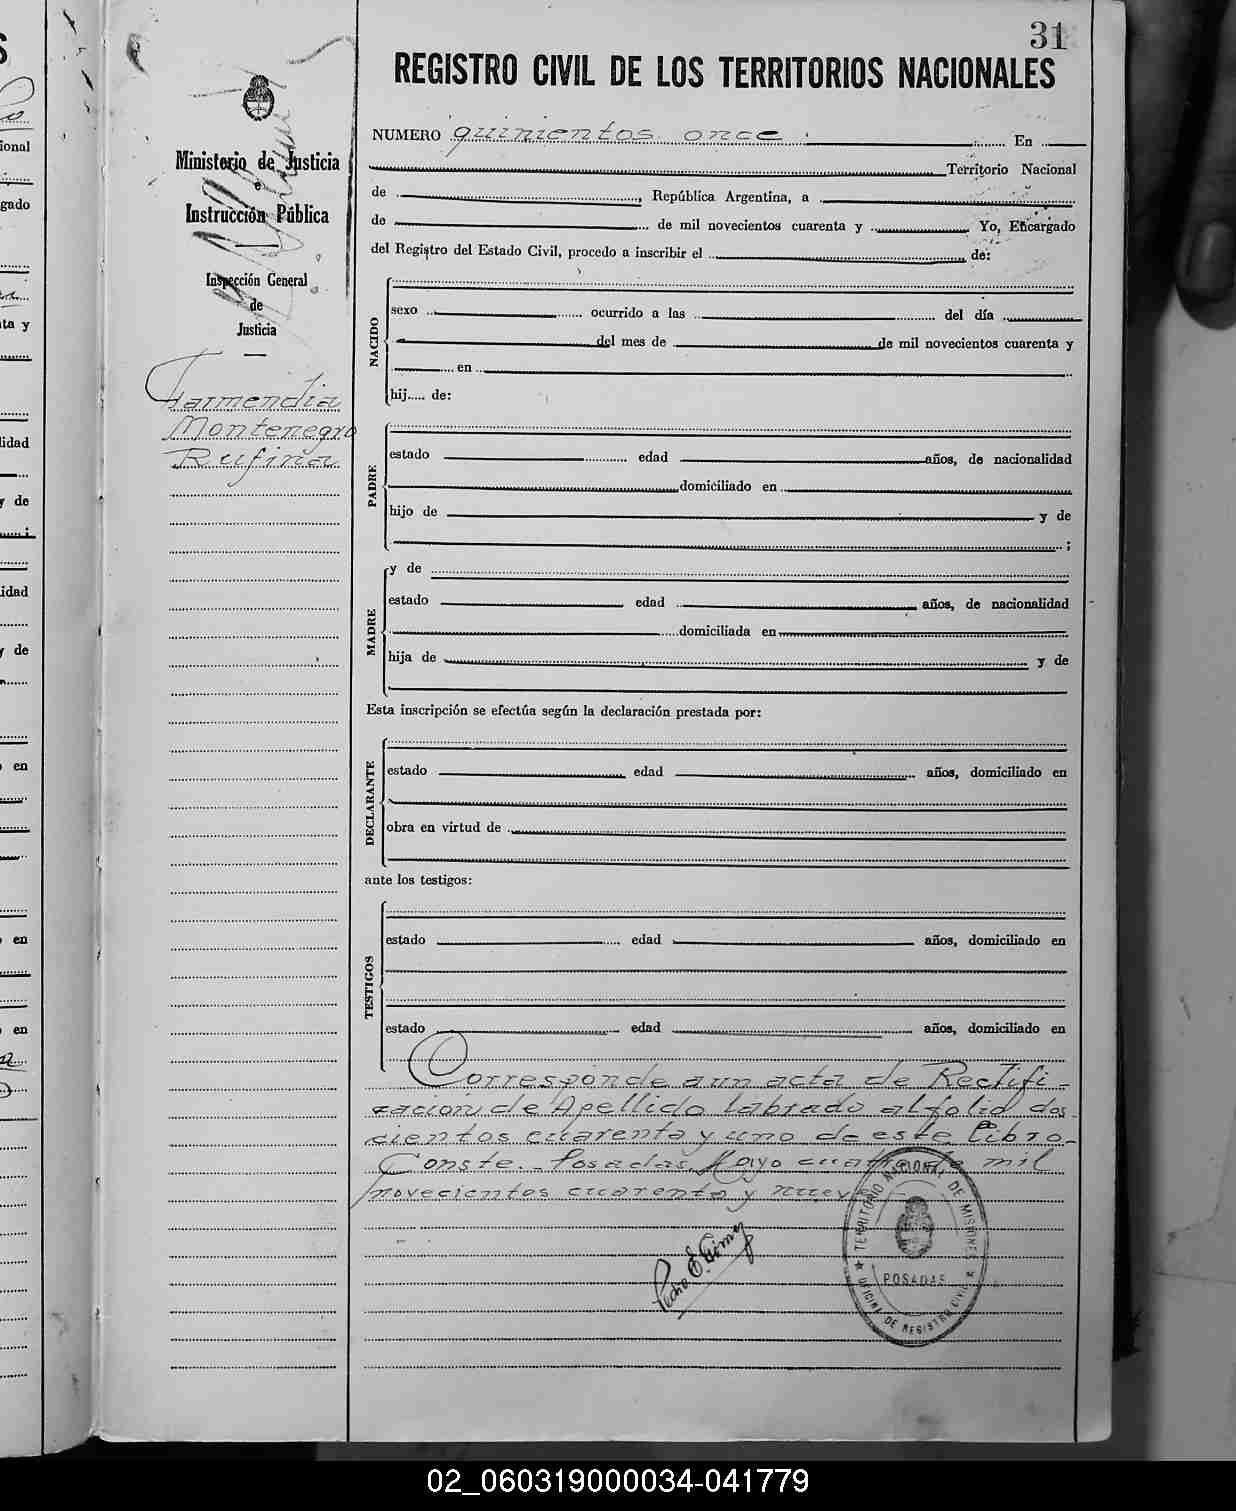 31
REGISTRO CIVIL DE LOS TERRITORIOS NACIONALES
Ministerio de Justicia
e
Instrucción Pública
Inspección General
de
Justicia
Garmendia
Montenegro
Rufina
NUMERO quinientos once En
Territorio Nacional
de , República Argentina, a
de de mil novecientos cuarenta y Yo, Encargado
del Registro del Estado Civil, procedo a inscribir el de:
NACIDO
sexo ocurrido a las del día
del mes de de mil novecientos cuarenta y
en
hij..... de:
PADRE
estado edad años, de nacionalidad
domiciliado en
hijo de y de
;
MADRE
y de
estado edad años, de nacionalidad
domiciliada en
hija de y de
Esta inscripción se efectúa según la declaración prestada por:
DECLARANTE
estado edad años, domiciliado en
obra en virtud de
ante los testigos:
TESTIGOS
estado edad años, domiciliado en
estado edad años, domiciliado en
Corresponde a un acta de Rectifi-
cacion de Apellido labrado al folio dos
cientos cuarenta y uno de este Libro-
Conste.- Posadas, Mayo cuatro de mil
novecientos cuarenta y nueve
Pedro E. Gimez
TERRITORIO NACIONAL DE MISIONES
POSADAS
OFICINA DE REGISTRO CIVIL
ional
gado
ta y
idad
y de
idad
y de
en
en
en
02_060319000034-041779